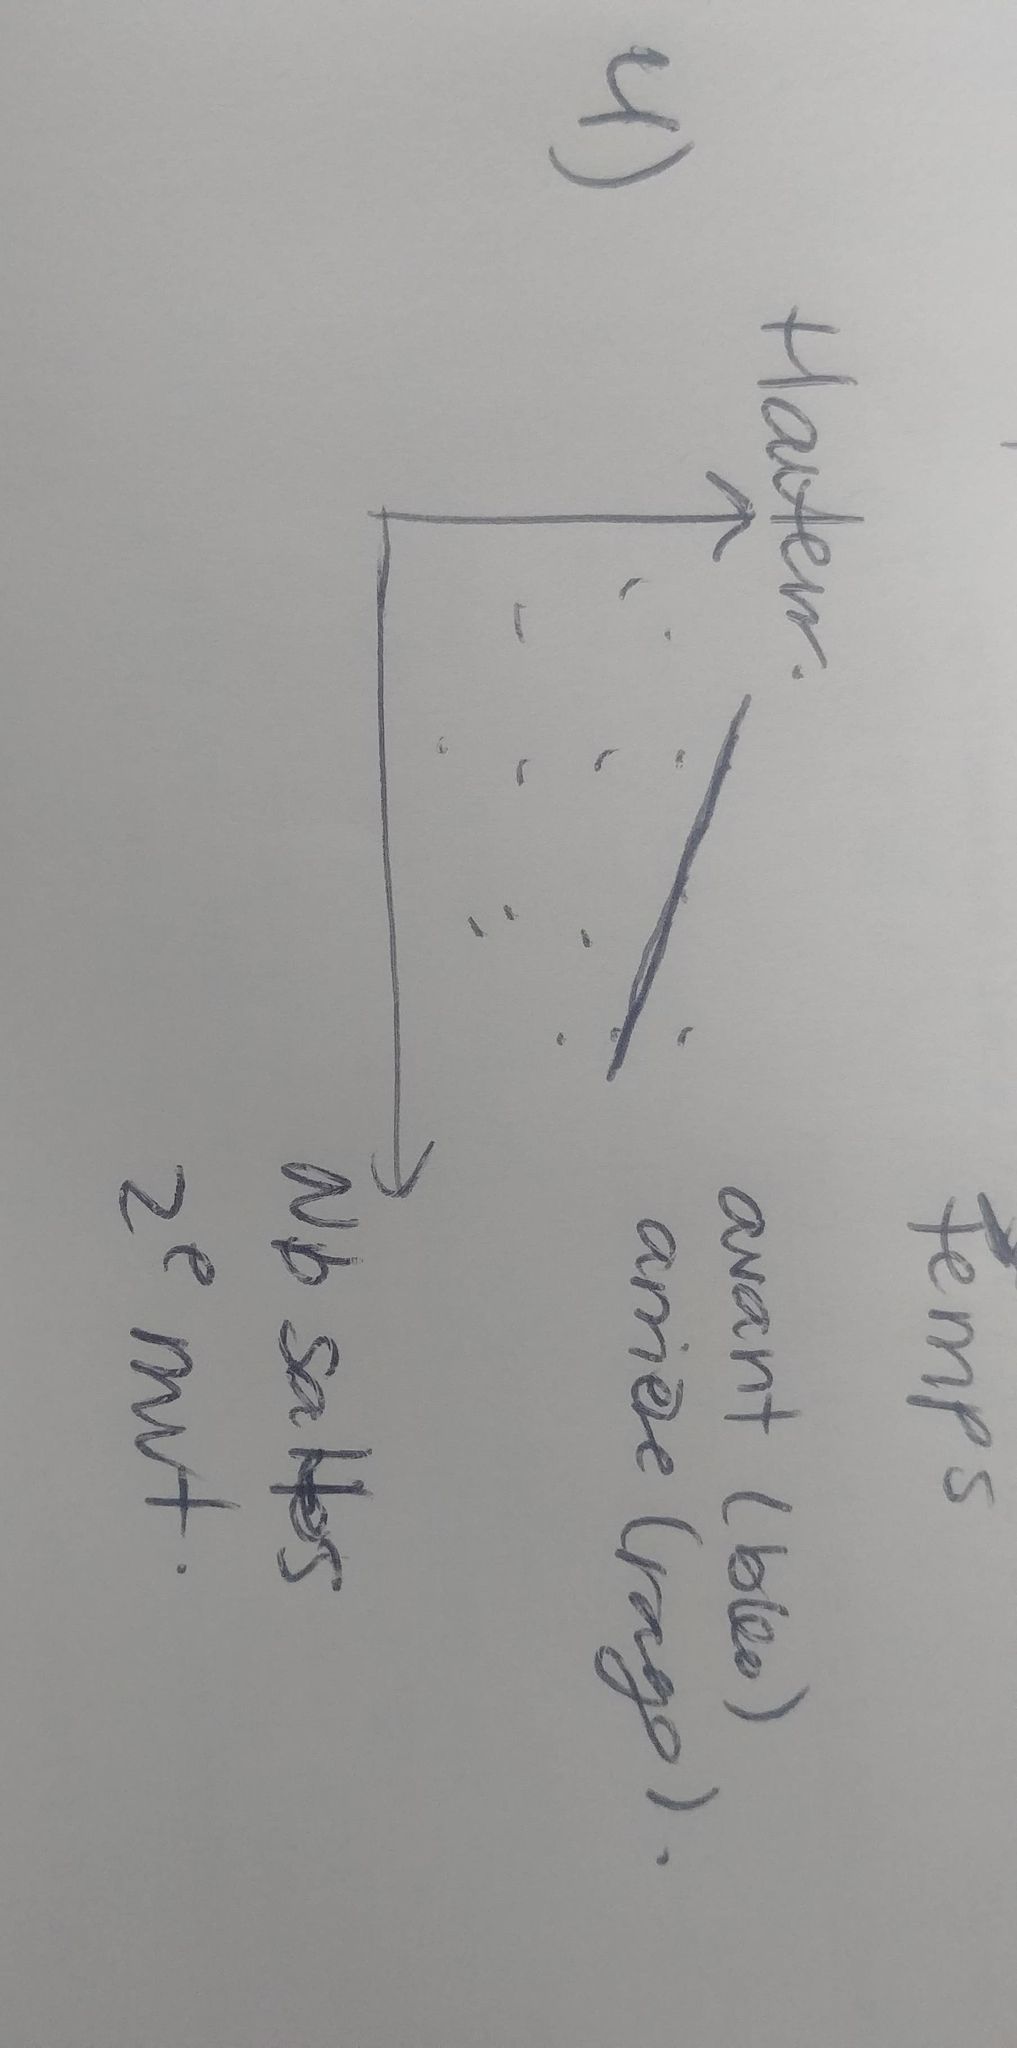 temps
4)
Hauteur.
avant (bleu)
arrière (rouge).
Nb saltos
2e mvt.